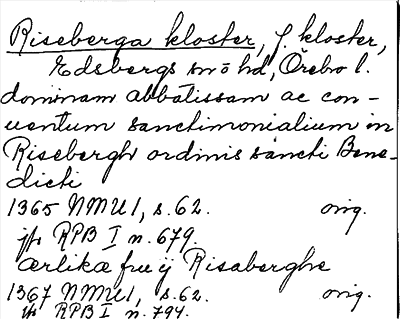 Riseberga kloster, f. kloster,
Edsbergs sn o hd, Örebro l.
dominam abbatissam ac con-
uentum sanctimonialium in
Risebergh ordinis sancti Bene-
dicti
1365 NMU 1, s. 62. orig.
jfr RPB I n. 679.
ærlika frw ij Risaberghe
1367 NMU 1, s. 62. orig.
jfr RPB I n. 794.